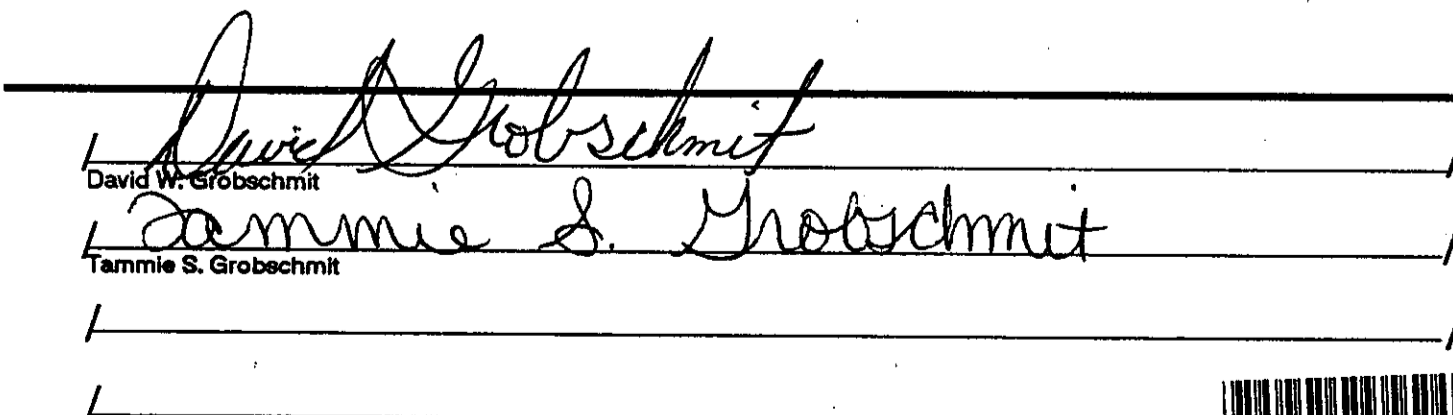 David Grobschmit
David W. Grobschmit
Tammie S. Grobschmit
Tammie S. Grobschmit